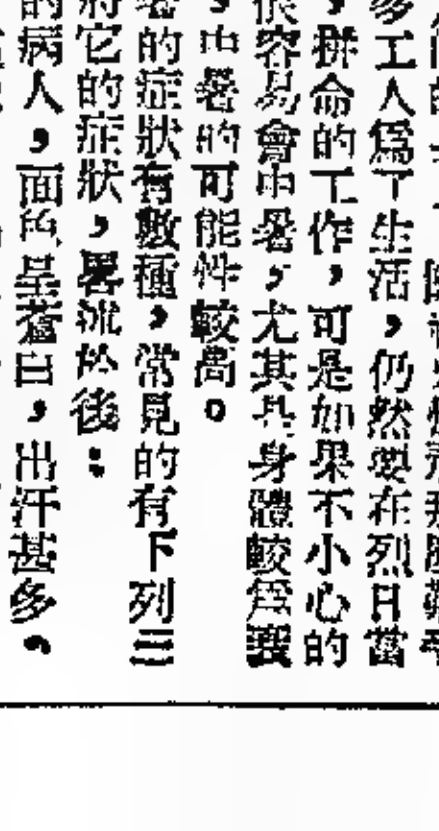 多工人爲了生活，仍然要在烈日當
，拼命的工作，可是如果不小心的
很容易會中暑，尤其是身體較爲
，中暑的可能性較高。
的症狀有數種，常見的有下列三
將它的症狀，畧述於後：
的病人，面色呈蒼白，出汗甚多。